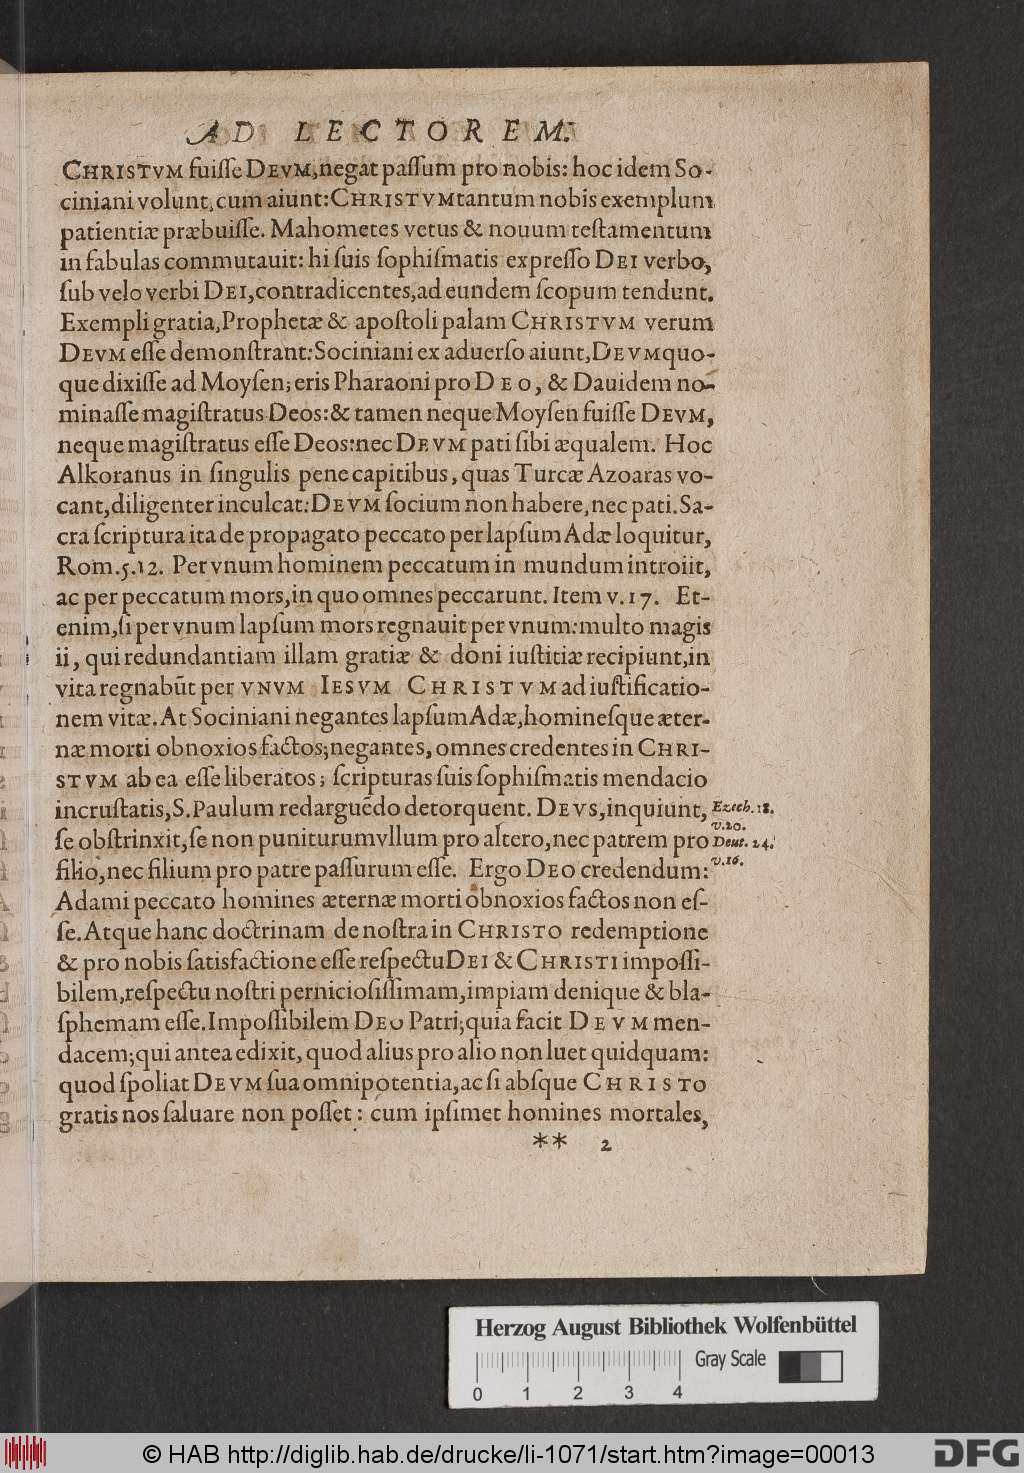 AD LECTOREM.
CHRISTVM fuiſſe DEVM, negat paſſum pro nobis: hoc idem So-
ciniani volunt, cum aiunt: CHRISTVM tantum nobis exemplum
patientiæ præbuiſſe. Mahometes vetus & nouum teſtamentum
in fabulas commutauit: hi ſuis ſophiſmatis expreſſo DEI verbo,
ſub velo verbi DEI, contradicentes, ad eundem ſcopum tendunt.
Exempli gratia, Prophetæ & apoſtoli palam CHRISTVM verum
DEVM eſſe demonſtrant: Sociniani ex aduerſo aiunt, DEVM quo-
que dixiſſe ad Moyſen; eris Pharaoni pro DEO, & Dauidem no-
minaſſe magiſtratus Deos: & tamen neque Moyſen fuiſſe DEVM,
neque magiſtratus eſſe Deos: nec DEVM pati ſibi æqualem. Hoc
Alkoranus in ſingulis pene capitibus, quas Turcæ Azoaras vo-
cant, diligenter inculcat: DEVM ſocium non habere, nec pati. Sa-
cra ſcriptura ita de propagato peccato per lapſum Adæ loquitur,
Rom. 5. 12. Per vnum hominem peccatum in mundum introiit,
ac per peccatum mors, in quo omnes peccarunt. Item v. 17. Et-
enim, ſi per vnum lapſum mors regnauit per vnum: multo magis
ii, qui redundantiam illam gratiæ & doni iuſtitiæ recipiunt, in
vita regnabũt per VNVM IESVM CHRISTVM ad iuſtificatio-
nem vitæ. At Sociniani negantes lapſum Adæ, homineſque æter-
næ morti obnoxios factos; negantes, omnes credentes in CHRI-
STVM ab ea eſſe liberatos; ſcripturas ſuis ſophiſmatis mendacio
incruſtatis, S. Paulum redarguēdo detorquent. DEVS, inquiunt,
Ezech. 18.
v. 20.
ſe obſtrinxit, ſe non puniturum vllum pro altero, nec patrem pro
Deut. 24.
v. 16.
filio, nec filium pro patre paſſurum eſſe. Ergo DEO credendum:
Adami peccato homines æternæ morti obnoxios factos non eſ-
ſe. Atque hanc doctrinam de noſtra in CHRISTO redemptione
& pro nobis ſatisfactione eſſe reſpectu DEI & CHRISTI impoſſi-
bilem, reſpectu noſtri pernicioſiſſimam, impiam denique & bla-
ſphemam eſſe. Impoſſibilem DEO Patri; quia facit DEVM men-
dacem; qui antea edixit, quod alius pro alio non luet quidquam:
quod ſpoliat DEVM ſua omnipotentia, ac ſi abſque CHRISTO
gratis nos ſaluare non poſſet: cum ipſimet homines mortales,
** 2
Herzog August Bibliothek Wolfenbüttel
Gray Scale
0 1 2 3 4
© HAB http://diglib.hab.de/drucke/li-1071/start.htm?image=00013
DFG